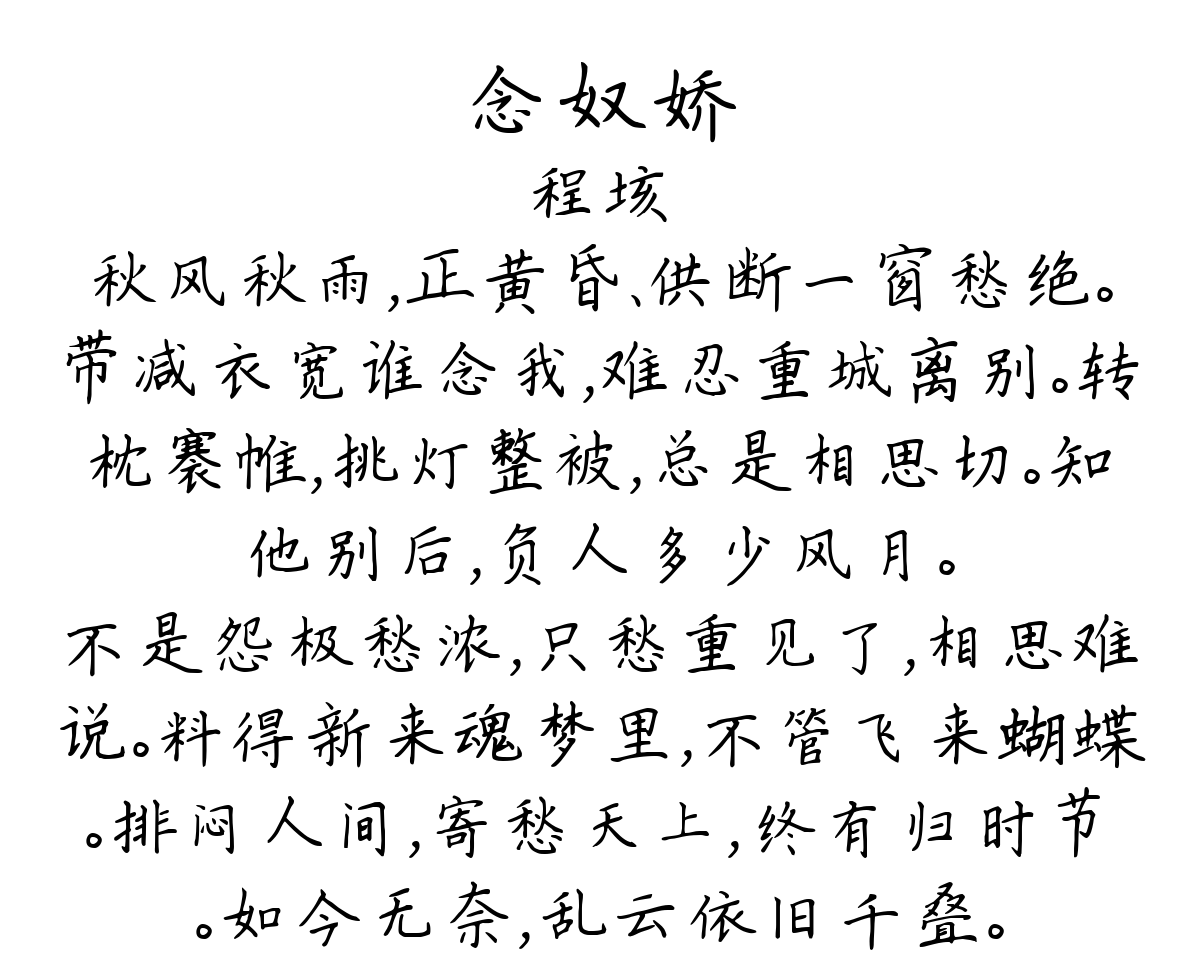 念奴娇
程垓
秋风秋雨,正黄昏、供断一窗愁绝。
带减衣宽谁念我,难忍重城离别。转
枕褰帷,挑灯整被,总是相思切。知
他别后,负人多少风月。
不是怨极愁浓,只愁重见了,相思难
说。料得新来魂梦里,不管飞来蝴蝶
。排闷人间,寄愁天上,终有归时节
。如今无奈,乱云依旧千叠。